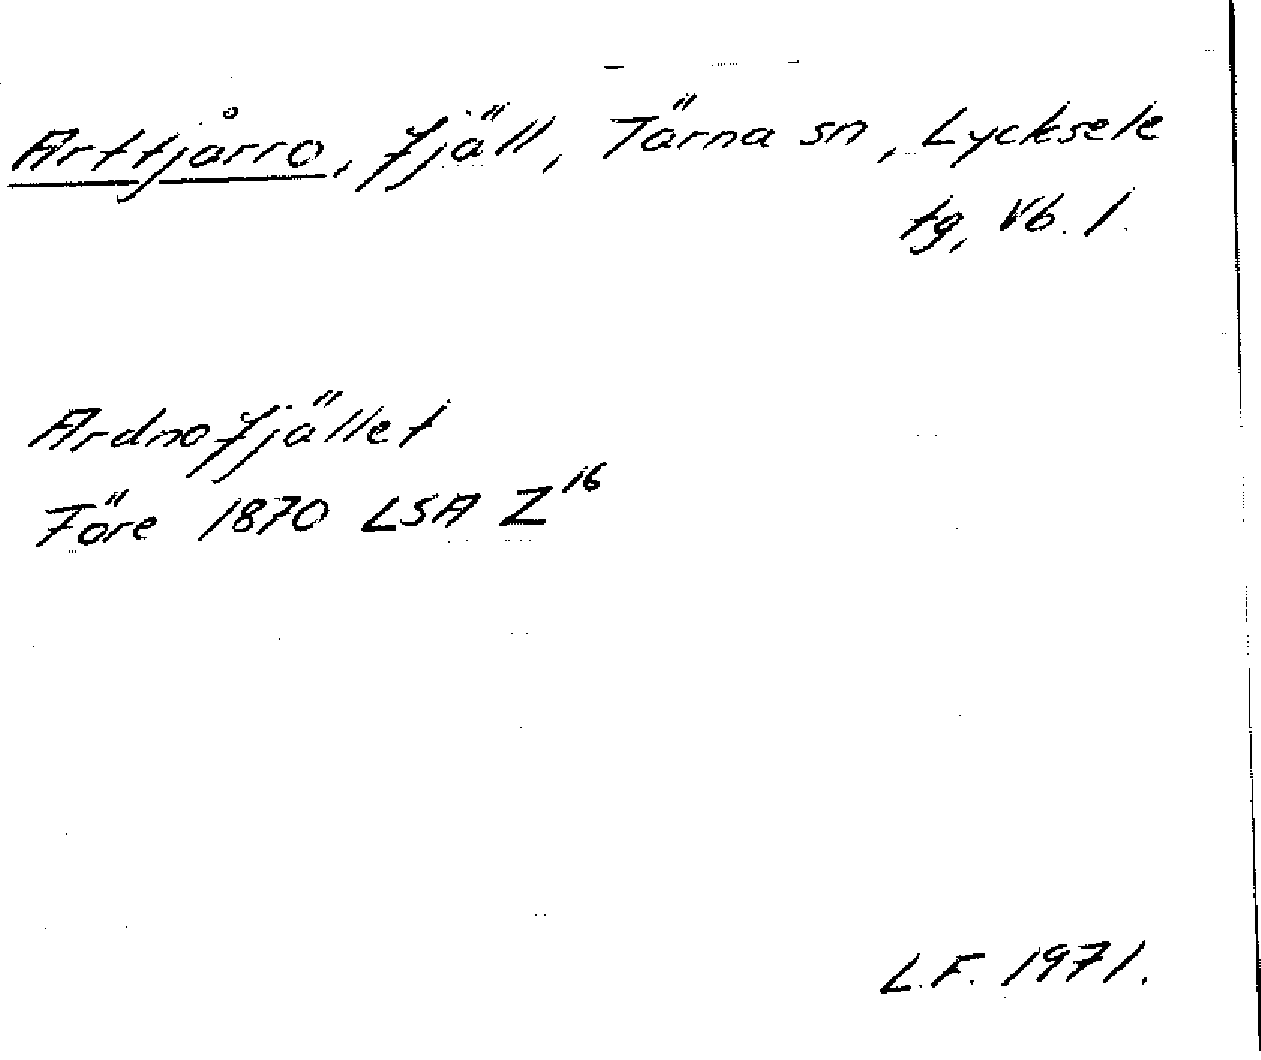 Arttjårro, fjäll, Tärna sn, Lycksele
tg, Vb. l.
Ardnofjället
Före 1870 LSA Z16
L.F. 1971.